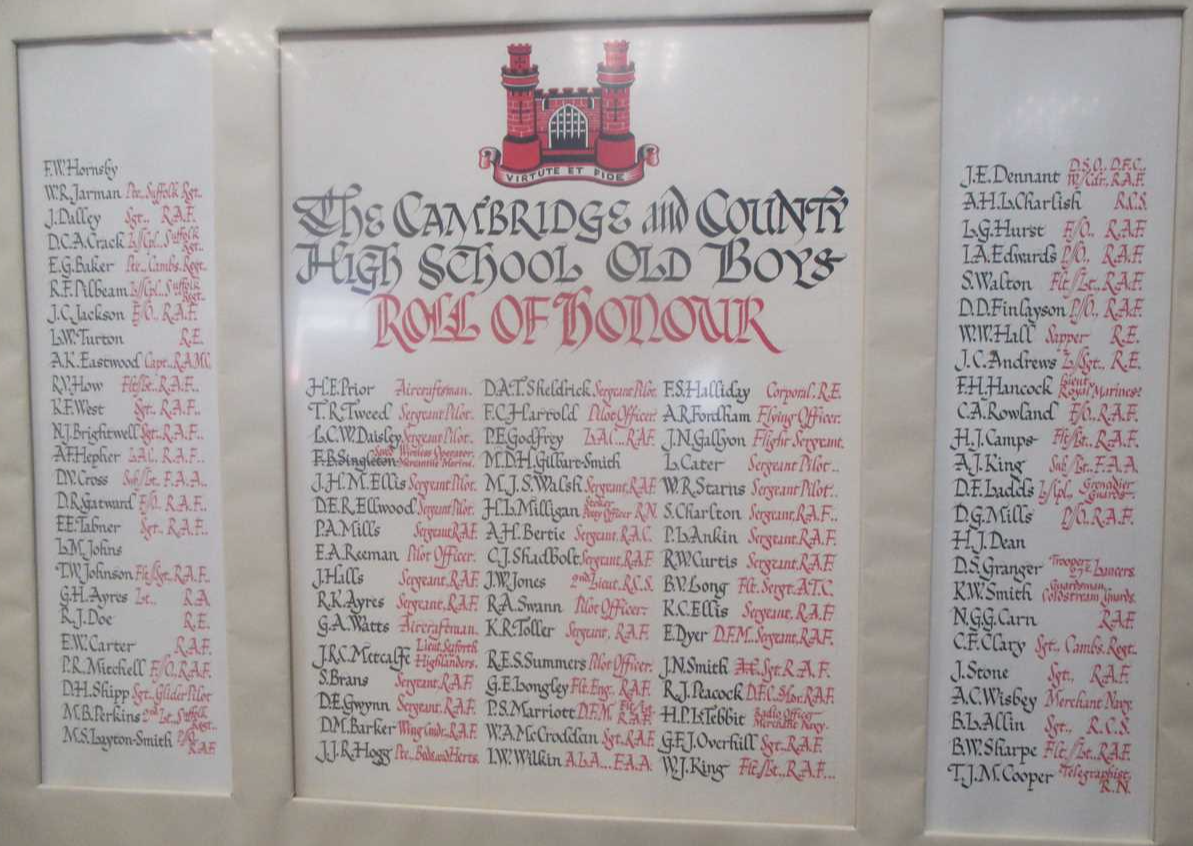 F.W.Hornsby
W.R.Jarman Pte., Suffolk Rgt.
J.Dalley Sgt., R.A.F.
D.C.A.Crack L/Cpl., Suffolk Regt.
E.G.Baker Pte., Cambs. Regt.
R.F.Pilbeam L/Cpl., Suffolk Regt.
J.C.Jackson F/O., R.A.F.
L.W.Turton R.E.
A.K.Eastwood Capt., R.A.M.C.
R.V.How Flt/Lt., R.A.F.
K.F.West Sgt., R.A.F.
N.J.Brightwell Sgt., R.A.F.
A.F.Hepher L.A.C., R.A.F.
D.V.Cross Sub/Lt., F.A.A.
D.R.Gatward F/O., R.A.F.
E.E.Tabner Sgt., R.A.F.
L.M.Johns
T.W.Johnson Flt/Sgt., R.A.F.
G.H.Ayres Lt., R.A
R.J.Doe R.E.
E.W.Carter R.A.F.
P.R.Mitchell F/O., R.A.F.
D.H.Shipp Sgt., Glider Pilot
M.B.Perkins 2nd Lt., Suffolk Regt.
M.S.Layton-Smith P/O., R.A.F.
VIRTUTE ET FIDE
The CAMBRIDGE and COUNTY
HIGH SCHOOL OLD BOYS
ROLL OF HONOUR
H.E.Prior Aircraftman.
T.R.Tweed Sergeant Pilot.
L.C.W.Daisley Sergeant Pilot.
F.B.Singleton Wireless Operator. Mercantile Marine.
J.H.M.Ellis Sergeant Pilot.
D.E.R.Ellwood Sergeant Pilot.
P.A.Mills Sergeant, R.A.F.
E.A.Reeman Pilot Officer.
J.Halls Sergeant, R.A.F.
R.K.Ayres Sergeant, R.A.F.
G.A.Watts Aircraftman.
J.R.C.Metcalfe Lieut. Seaforth Highlanders.
S.Brans Sergeant, R.A.F.
D.E.Gwynn Sergeant, R.A.F.
D.M.Barker Wing Cmdr., R.A.F.
J.J.R.Hogg Pte., Beds and Herts.
D.A.T.Sheldrick Sergeant Pilot.
F.C.Harrold Pilot Officer.
P.E.Godfrey L.A.C., R.A.F.
M.D.H.Gilbart-Smith
M.J.S.Walsh Sergeant, R.A.F.
H.L.Milligan Stoker Petty Officer R.N.
A.H.Bertie Sergeant, R.A.C.
C.J.Shadbolt Sergeant, R.A.F.
J.W.Jones 2nd Lieut., R.C.S.
R.A.Swann Pilot Officer
K.R.Toller Sergeant, R.A.F.
R.E.S.Summers Pilot Officer.
G.E.Longley Flt. Eng., R.A.F.
P.S.Marriott D.F.M. Flt/Lt. R.A.F.
W.A.McCroddan Sgt., R.A.F.
I.W.Wilkin A.L.A., F.A.A.
F.S.Halliday Corporal, R.E.
A.R.Fordham Flying Officer.
J.N.Gallyon Flight Sergeant.
L.Cater Sergeant Pilot..
W.R.Starns Sergeant Pilot..
S.Charlton Sergeant, R.A.F..
P.L.Ankin Sergeant, R.A.F.
R.W.Curtis Sergeant, R.A.F.
B.V.Long Flt. Sergt. A.T.C.
K.C.Ellis Sergeant, R.A.F.
E.Dyer D.F.M. Sergeant, R.A.F.
J.N.Smith Sgt. R.A.F.
R.J.Peacock D.F.C. S.Ldr., R.A.F.
H.P.L.Tebbit Radio Officer Merchant Navy.
G.F.J.Overhill Sgt., R.A.F.
W.J.King Flt./Lt., R.A.F...
J.E.Dennant D.S.O., D.F.C., W/Cdr., R.A.F.
A.H.L.Charlish R.C.S.
L.G.Hurst F/O., R.A.F.
I.A.Edwards P/O., R.A.F.
S.Walton Flt/Lt., R.A.F.
D.D.Finlayson P/O., R.A.F.
W.W.Hall Sapper R.E.
J.C.Andrews L/Sgt., R.E.
F.H.Hancock Lieut. Royal Marines.
C.A.Rowland F/O., R.A.F.
H.J.Camps Flt/Lt., R.A.F.
A.J.King Sub/Lt., F.A.A
D.F.Ladds L/Cpl., Grenadier Guards.
D.G.Mills P/O., R.A.F.
H.J.Dean
D.S.Granger Trooper 27 Lancers.
K.W.Smith Guardsman, Coldstream Guards.
N.G.G.Carn R.A.F.
C.F.Clary Sgt., Cambs. Regt.
J.Stone Sgt., R.A.F.
A.C.Wisbey Merchant Navy.
B.L.Allin Sgt., R.C.S.
B.W.Sharpe Flt/Lt., R.A.F.
T.J.M.Cooper Telegraphist, R.N.